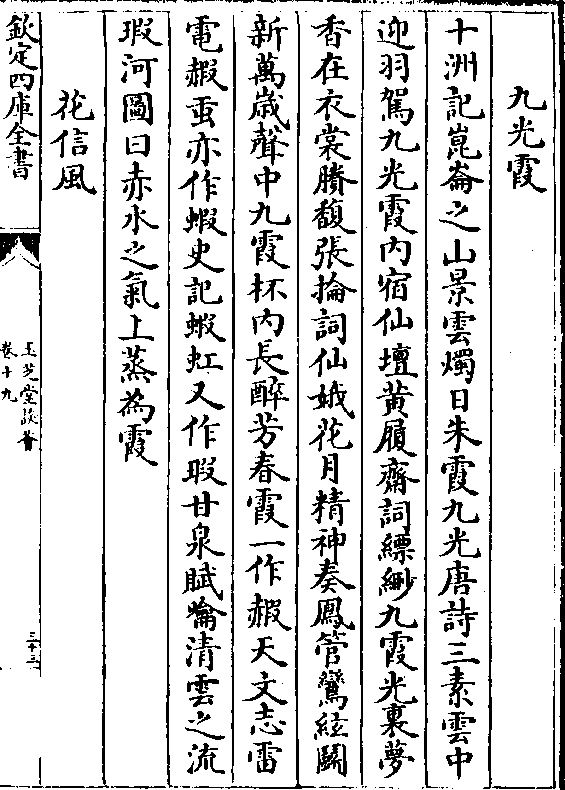 九光霞
十洲記崑崙之山景雲燭日朱霞九光唐詩三素雲中
迎羽駕九光霞内宿仙壇黄履齋詞縹緲九霞光裏夢
香在衣裳賸馥張掄詞仙娥花月精神奏鳳管鸞絃鬭
新萬歲聲中九霞杯内長醉芳春霞一作赮天文志雷
電赮䖝亦作蝦史記蝦虹又作瑕甘泉賦噏清雲之流
瑕河圖曰赤水之氣上蒸為霞
花信風
欽定四庫全書
玉芝堂談薈
卷十九
三十三